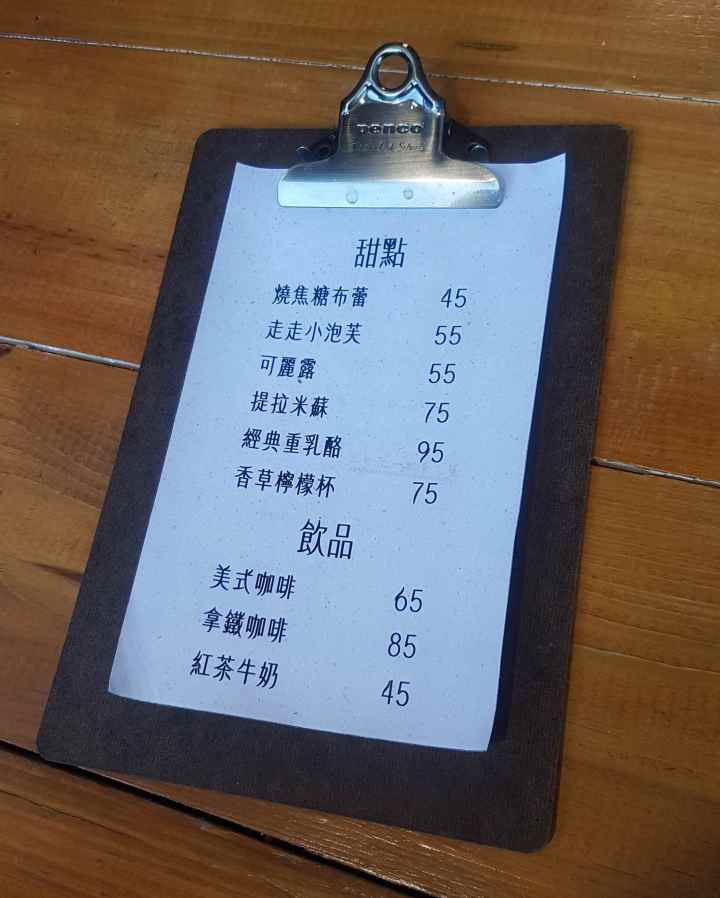 penco
甜點
燒焦糖布蕾 45
走走小泡芙 55
可麗露 55
提拉米蘇 75
經典重乳酪 95
香草檸檬杯 75
飲品
美式咖啡 65
拿鐵咖啡 85
紅茶牛奶 45